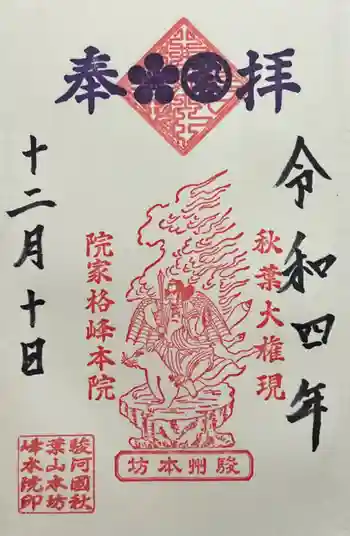 奉拝
令和四年
十二月十日
秋葉大権現
院家格峰本院
駿州本坊
駿河國秋
葉山本坊
峰本院印